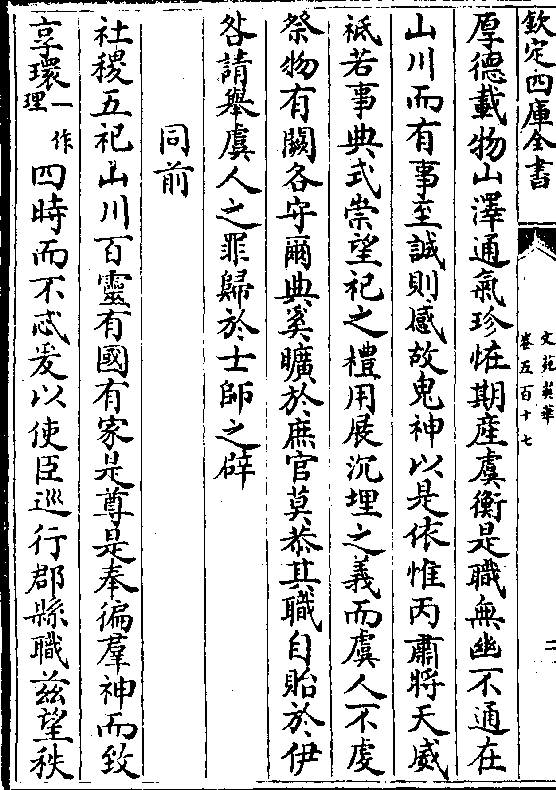 欽定四庫全書
文苑英華
卷五百十七
二
厚德載物山澤通氣珍恠期産虞衡是職無幽不通在
山川而有事至誠則感故鬼神以是依惟丙肅將天威
祗若事典式崇望祀之禮用展沉埋之義而虞人不虔
祭物有闕各守爾典奚曠於庶官莫恭其職自貽於伊
咎請舉虞人之罪歸於士師之辟
同前
社稷五祀山川百靈有國有家是尊是奉徧羣神而致
享環一作理四時而不忒爰以使臣巡行郡縣職兹望秩